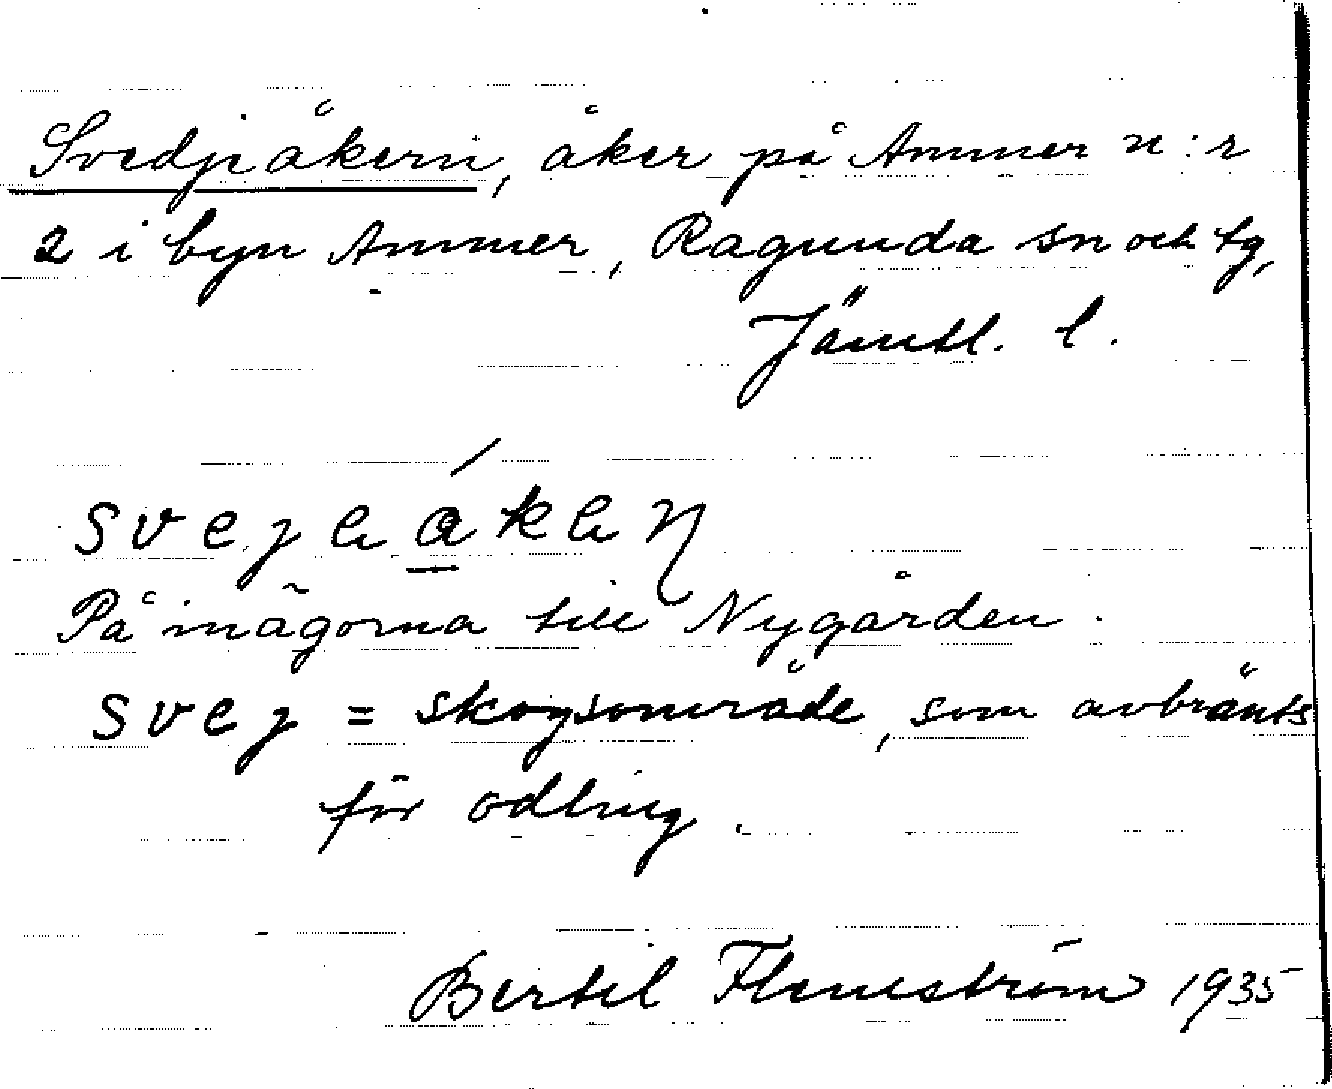 Svedjeåkern, åker på Ammer n:r
2 i byn Ammer, Ragunda sn och tg,
Jämtl. l.
På inägorna till Nygården.
svej = skogsområde, som avbränts
för odling.
Bertil Flemström 1935